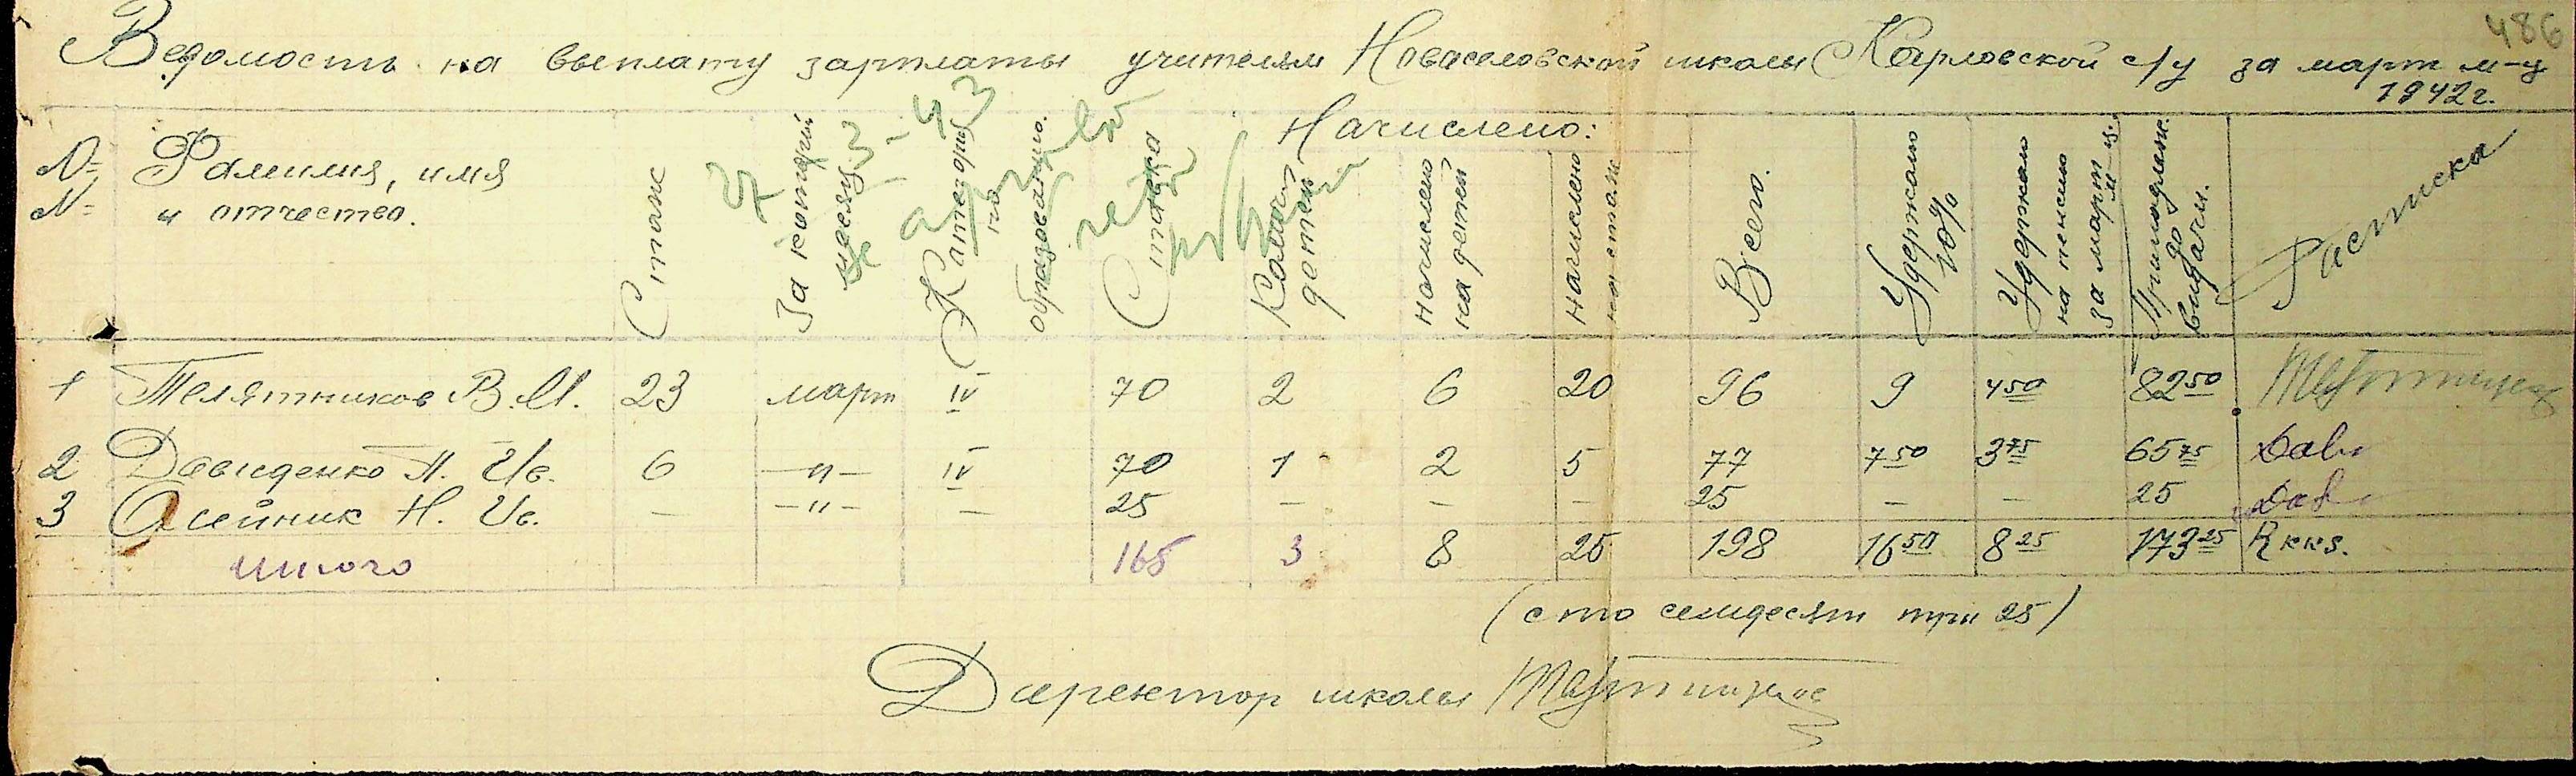 486
Ведомость на выплату зарплаты учителям Новоселовской школы Карловской с/у за март м-ц
1942 г.
№ № Фамилия, имя и отчество. Стаж За который месяц Категория по образованию. Ставка Начислено: Колич. детей начислено на детей начислено на стаж Всего. Удержано 10% Удержано на пенсию за март м-ц. Принадлеж. до выдачи. Расписка
1 Телятников В. И. 23 март IV 70 2 6 20 96 9 4 50 82 50
2 Давиденко Н. Ив. 6 —"— IV 70 1 2 5 77 7 50 3 75 65 75 Dav
3 Олейник Н. Ив. — —"— — 25 — — — 25 — — 25
итого 165 3 8 25 198 16 50 8 25 173 25 Rккs.
(сто семдесят три 25)
Директор школы